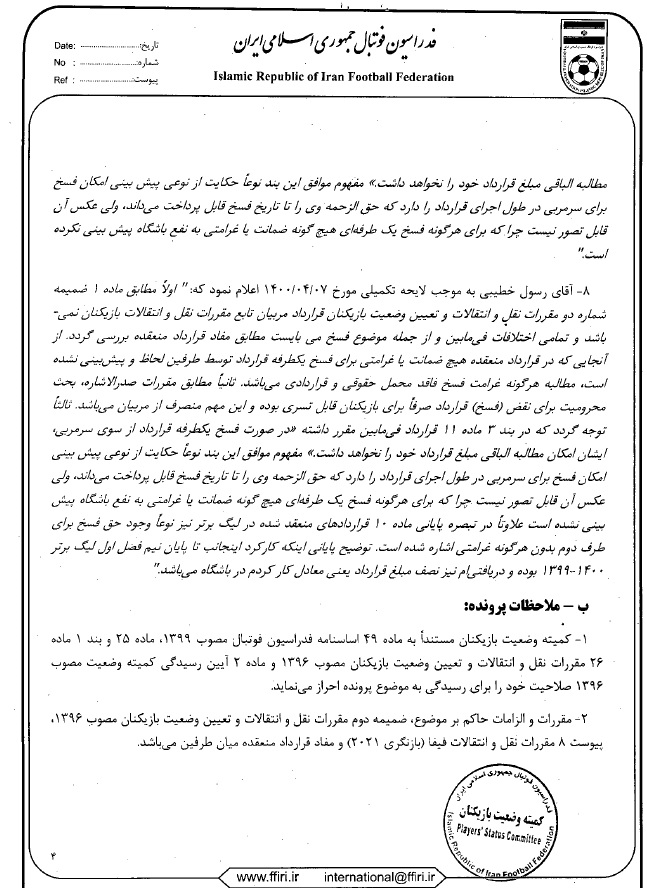 فدراسیون فوتبال جمهوری اسلامی ایران
Islamic Republic of Iran Football Federation
Date: ............................ تاریخ:
No : ............................ شماره:
Ref : ............................ پیوست:
مطالبه الباقی مبلغ قرارداد خود را نخواهد داشت.» مفهوم موافق این بند نوعاً حکایت از نوعی پیش بینی امکان فسخ
برای سرمربی در طول اجرای قرارداد را دارد که حق الزحمه وی را تا تاریخ فسخ قابل پرداخت می‌داند، ولی عکس آن
قابل تصور نیست چرا که برای هرگونه فسخ یک طرفه‌ای هیچ گونه ضمانت یا غرامتی به نفع باشگاه پیش بینی نکرده
است."
۸- آقای رسول خطیبی به موجب لایحه تکمیلی مورخ ۱۴۰۰/۰۴/۰۷ اعلام نمود که:" اولاً مطابق ماده ۱ ضمیمه
شماره دو مقررات نقل و انتقالات و تعیین وضعیت بازیکنان قرارداد مربیان تابع مقررات نقل و انتقالات بازیکنان نمی-
باشد و تمامی اختلافات فی‌مابین و از جمله موضوع فسخ می بایست مطابق مفاد قرارداد منعقده بررسی گردد. از
آنجایی که در قرارداد منعقده هیچ ضمانت یا غرامتی برای فسخ یکطرفه قرارداد توسط طرفین لحاظ و پیش‌بینی نشده
است، مطالبه هرگونه غرامت فسخ فاقد محمل حقوقی و قراردادی می‌باشد. ثانیاً مطابق مقررات صدرالاشاره، بحث
محرومیت برای نقض (فسخ) قرارداد صرفاً برای بازیکنان قابل تسری بوده و این مهم منصرف از مربیان می‌باشد. ثالثاً
توجه گردد که در بند ۳ ماده ۱۱ قرارداد فی‌مابین مقرر داشته «در صورت فسخ یکطرفه قرارداد از سوی سرمربی،
ایشان امکان مطالبه الباقی مبلغ قرارداد خود را نخواهد داشت.» مفهوم موافق این بند نوعاً حکایت از نوعی پیش بینی
امکان فسخ برای سرمربی در طول اجرای قرارداد را دارد که حق الزحمه وی را تا تاریخ فسخ قابل پرداخت می‌داند، ولی
عکس آن قابل تصور نیست چرا که برای هرگونه فسخ یک طرفه‌ای هیچ گونه ضمانت یا غرامتی به نفع باشگاه پیش
بینی نشده است علاوتاً در تبصره پایانی ماده ۱۰ قراردادهای منعقد شده در لیگ برتر نیز نوعاً وجود حق فسخ برای
طرف دوم بدون هرگونه غرامتی اشاره شده است. توضیح پایانی اینکه کارکرد اینجانب تا پایان نیم فصل اول لیگ برتر
۱۴۰۰-۱۳۹۹ بوده و دریافتی‌ام نیز نصف مبلغ قرارداد یعنی معادل کار کردم در باشگاه می‌باشد."
ب – ملاحظات پرونده:
۱- کمیته وضعیت بازیکنان مستنداً به ماده ۴۹ اساسنامه فدراسیون فوتبال مصوب ۱۳۹۹، ماده ۲۵ و بند ۱ ماده
۲۶ مقررات نقل و انتقالات و تعیین وضعیت بازیکنان مصوب ۱۳۹۶ و ماده ۲ آیین رسیدگی کمیته وضعیت مصوب
۱۳۹۶ صلاحیت خود را برای رسیدگی به موضوع پرونده احراز می‌نماید.
۲- مقررات و الزامات حاکم بر موضوع، ضمیمه دوم مقررات نقل و انتقالات و تعیین وضعیت بازیکنان مصوب ۱۳۹۶،
پیوست ۸ مقررات نقل و انتقالات فیفا (بازنگری ۲۰۲۱) و مفاد قرارداد منعقده میان طرفین می‌باشد.
فدراسیون فوتبال جمهوری اسلامی ایران
کمیته وضعیت بازیکنان
Players' Status Committee
Islamic Republic of Iran Football Federation
۴
www.ffiri.ir international@ffiri.ir